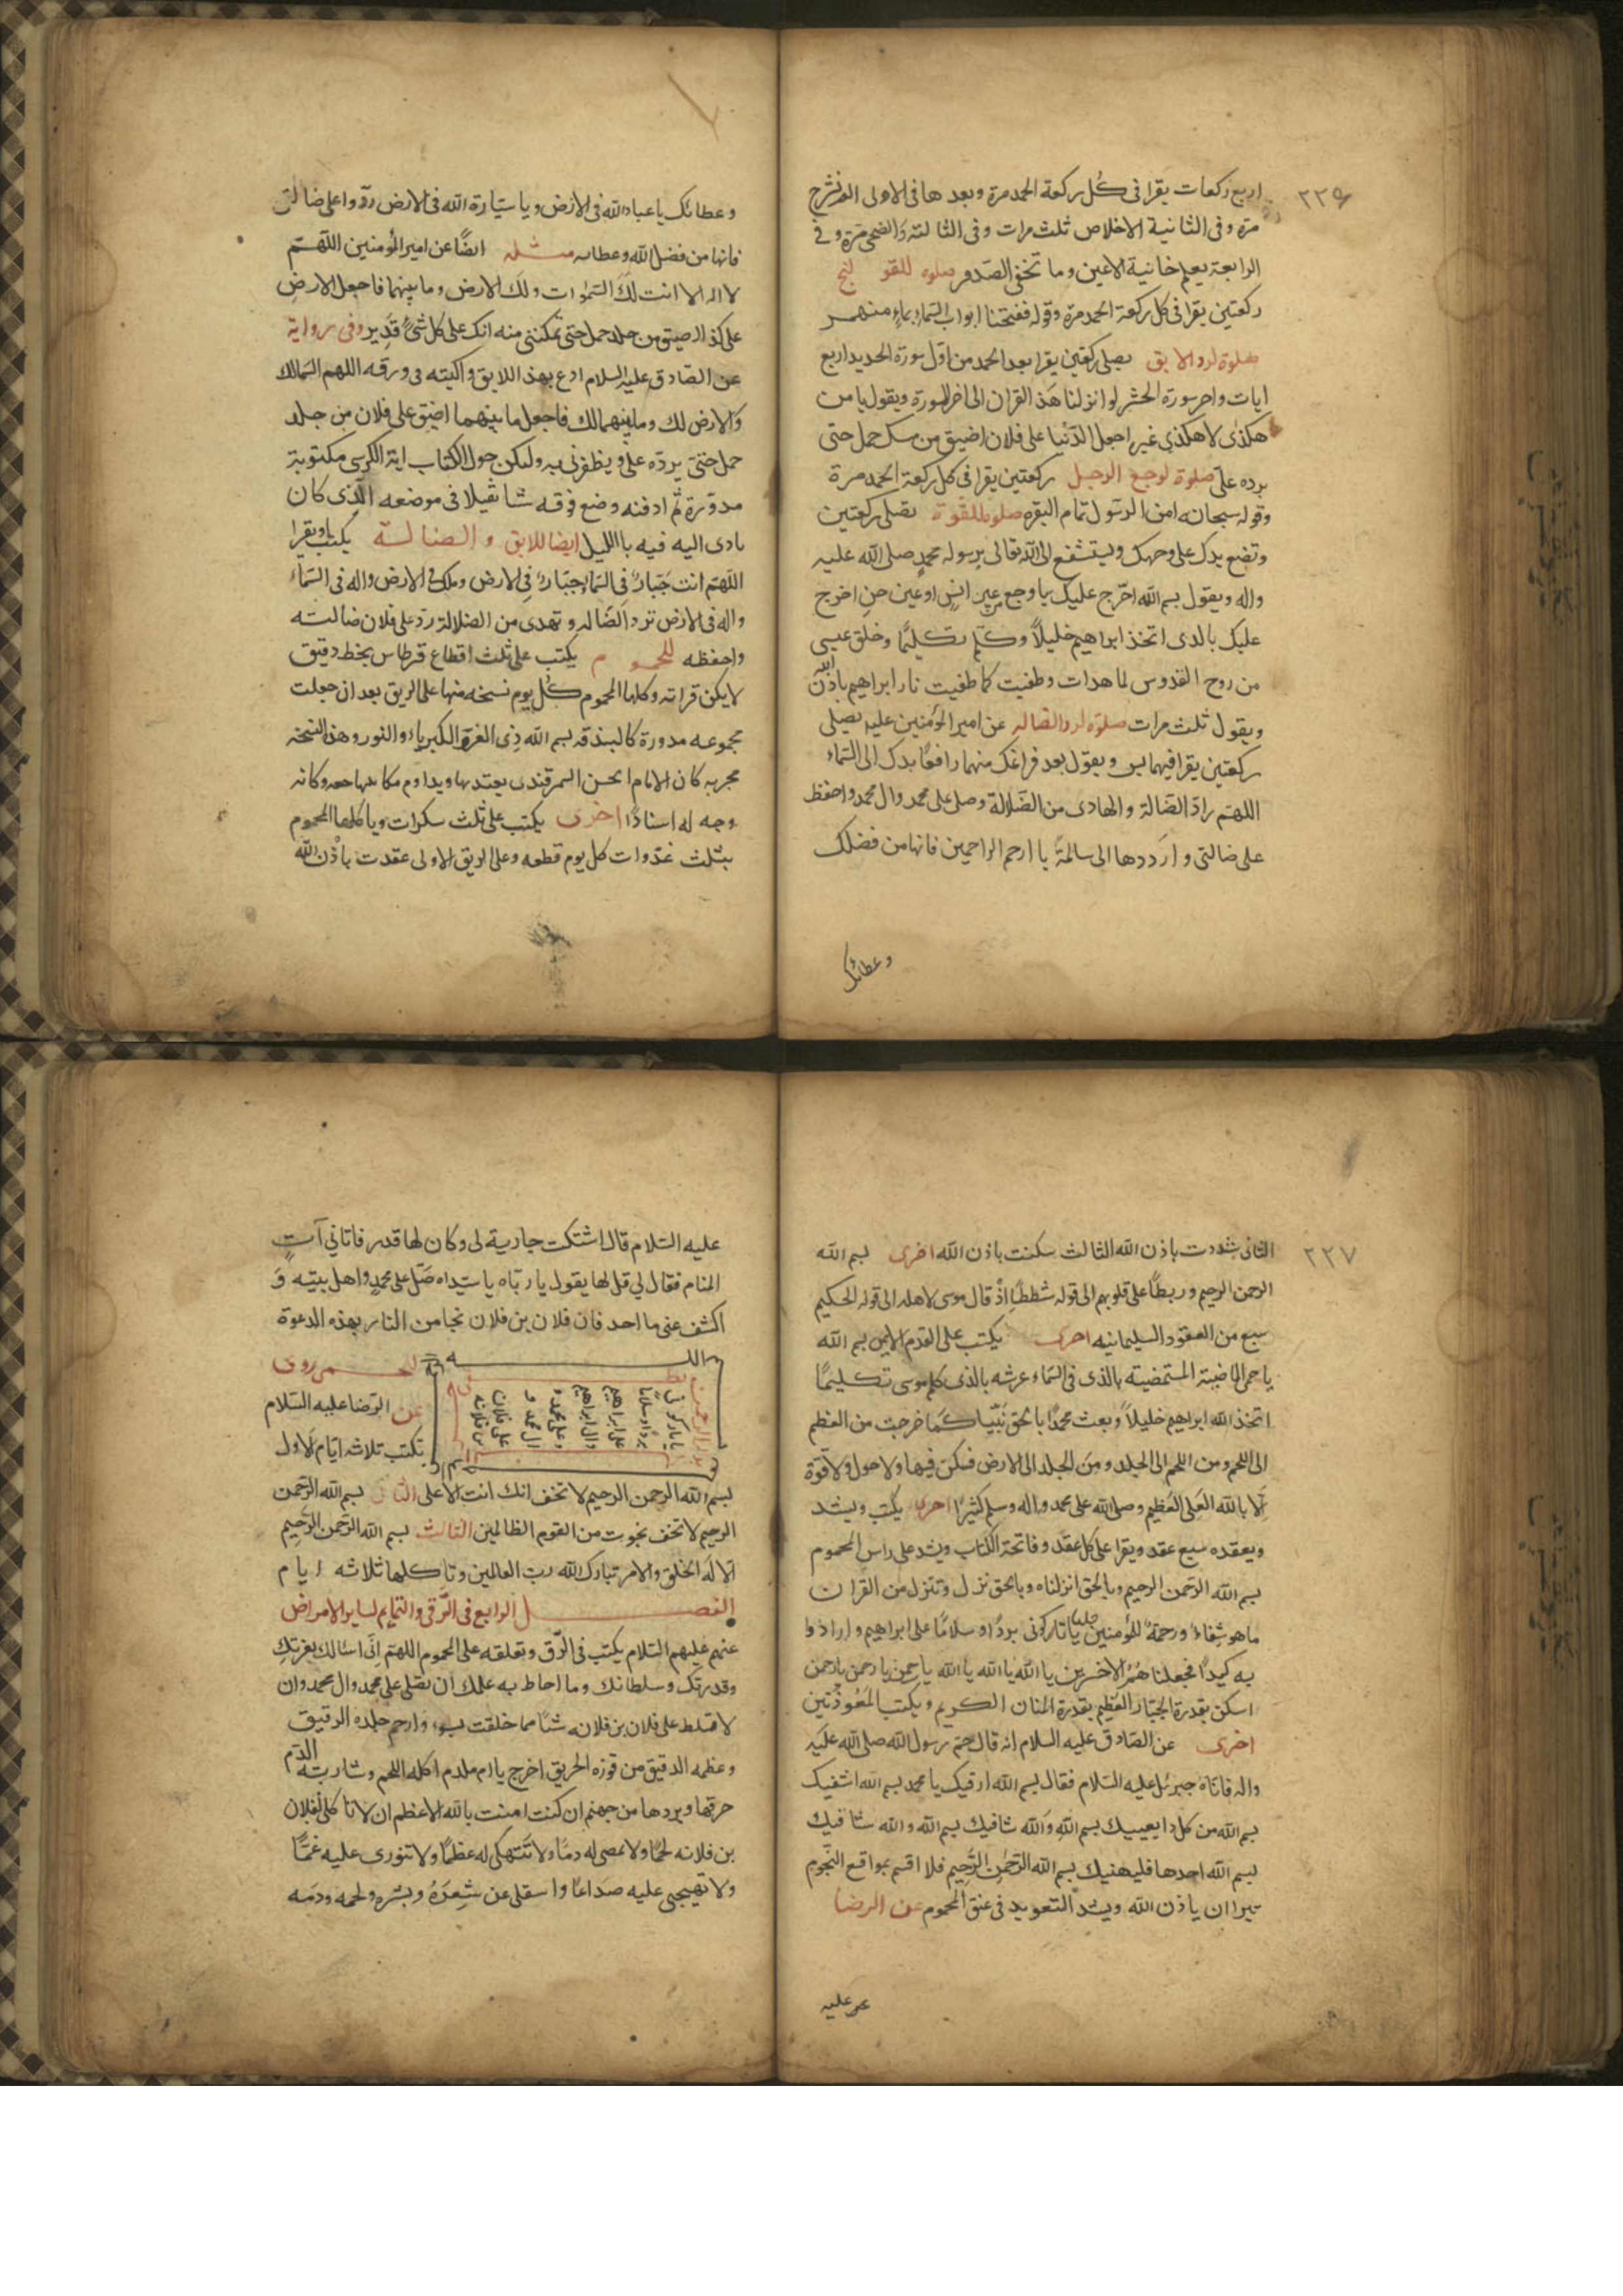 ٢٣٦
اربع ركعات يقرا فى كل ركعة الحمد مرة وبعدها فى الاولى الم نشرح
مرة وفى الثانية الاخلاص ثلث مرات وفى الثالثة والضحى مرة وفى
الرابعة يعلم خائنة الاعين وما تخفى الصدور صلوه
ركعتين يقرا فى كل ركعة الحمد مرة وقوله ففتحنا ابواب السماء بماء منهمر
صلوة لرد الابق يصلى ركعتين يقرا بعد الحمد من اول سورة الحديد اربع
ايات واخر سورة الحشر لو انزلنا هذ القران الى اخر السورة ويقول يا من
هكذى لا هكذى غيره اجعل الدنيا على فلان اضيق من مسك حمل حتى
يرده على صلوة لوجع الرجل ركعتين يقرا فى كل ركعة الحمد مرة
وقوله سبحانه امن الرسول تمام البقره صلوة للقوة تصلى ركعتين
وتضع يدك على وجهك وتستشفع الى الله تعالى برسوله محمد صلى الله عليه
واله ويقول بسم الله احرج عليك يا وجع من عين انس او عين جن اخرج
عليك بالذى اتخذ ابراهيم خليلا وكلم موسى تكليما وخلق عيسى
من روح القدوس لما هدات وطفيت كما طفيت نار ابراهيم باذن الله
ويقول ثلث مرات صلوة لرد الضاله عن امير المؤمنين عليه يصلى
ركعتين يقرا فيهما يس ويقول بعد فراغك منهما رافعا يدك الى السماء
اللهم راد الضالة والهادى من الضلالة وصل على محمد وال محمد واحفظ
على ضالتى وارددها الى سالمة يا ارحم الراحمين فانها من فضلك
وعطائك
وعطائك يا عباد الله فى الارض ويا سيارة الله فى الارض ردوا على ضالتى
فانها من فضل الله وعطائه مسئله ايضا عن امير المؤمنين اللهم
لا اله الا انت لك السموات ولك الارض وما بينهما فاجعل الارض
على كذا اضيق من جلد حمل حتى تمكننى منه انك على كل شئ قدير وفى رواية
عن الصادق عليه السلام ادع بهذ اللابق واكتبه فى ورقه اللهم السمالك
والارض لك وما بينهما لك فاجعل ما بينهما اضيق على فلان من جلد
حمل حتى يرده على ويظفرنى به وليكن حول الكتاب اية الكرسى مكتوبة
مدورة ثم ادفنه وضع فوقه شا ثقيلا فى موضعه الذى كان
يادى اليه فيه بالليل ايضا للابق والضالة يكتب او يقرا
اللهم انت جبار فى السماء جبار فى الارض وملك فى الارض واله فى السماء
واله فى الارض ترد الضاله وتهدى من الضلالة رد على فلان ضالته
واحفظه للحموم يكتب على ثلث اقطاع قرطاس بخط دقيق
لا يمكن قراته وكلها المحموم كل يوم نسخه منها على الريق بعد ان جعلت
مجموعه مدورة كالبندقه بسم الله ذى العزة والكبرياء والنور وهذ النسخه
مجربه كان الامام ابحسن السمرقندى يعتد بها ويداوم مكاتبها وكانه
وجه له اسنادا اخرى يكتب على ثلث سكرات وياكلها المحموم
بثلث غدوات كل يوم قطعه وعلى الريق الاولى عقدت باذن الله
٢٣٧
الثانى شددت باذن الله الثالث سكنت باذن الله اخرى بسم الله
الرحمن الرحيم وربطنا على قلوبهم الى قوله شططا اذ قال موسى لاهله الى قوله الحكيم
سبع من العقود السليمانيه اخرى يكتب على القدم الايمن بسم الله
يا حمى الماضية المستمضيته بالذى فى السماء عرشه بالذى كلم موسى تكليما
اتخذ الله ابراهيم خليلا وبعث محمدا بالحق نبيا كما خرجت من العظم
الى اللحم ومن اللحم الى الجلد ومن الجلد الى الارض فسكن فيها ولا حول ولا قوة
الا بالله العلى العظيم وصلى الله على محمد واله وسلم كثيرا اخرى يكتب ويشد
ويعقده سبع عقد ويقرا على كل عقد وفاتحة الكتاب ويشد على راس المحموم
بسم الله الرحمن الرحيم وبالحق انزلناه وبالحق نزل وننزل من القران
ما هو شفاء ورحمة للمؤمنين قلنا يا نار كونى بردا وسلاما على ابراهيم وارادوا
به كيدا فجعلناهم الاخسرين يا الله يا الله يا الله يا رحمن يا رحمن يا رحمن
اسكن بقدرة الجبار العظيم بقدرة المنان الكريم ويكتب المعوذتين
اخرى عن الصادق عليه السلام انه قال حم رسول الله صلى الله عليه
واله فاتاه جبرئل عليه السلام فقال بسم الله ارقيك يا محمد بسم الله اشفيك
بسم الله من كل دا يعييك بسم الله والله شافيك بسم الله والله شافيك
بسم الله احدها فليهنيك بسم الله الرحمن الرحيم فلا اقسم بمواقع النجوم
تبرا ان باذن الله ويشد التعويد فى عنق المحموم عن الرضا
عليه
عليه السلام قال اشتكت جارية لى وكان لها قدر فاتانى آت
المنام فقال لى قل لها يقول يا رباه يا سيداه صل على محمد واهل بيته و
اكشف عنى ما اجد فان فلان بن فلان نجا من النار بهذه الدعوة
للحمى روى
عن الرضا عليه السلام
تكتب ثلاثه ايام الاول
يا نار كونى
بردا وسلاما
على ابراهيم
وال ابراهيم
وعلى محمد و
ال محمد و
على فلان
بن فلانة
بسم الله الرحمن الرحيم لا تخف انك انت الاعلى الثانى بسم الله الرحمن
الرحيم لا تخف نجوت من القوم الظالمين الثالث بسم الله الرحمن الرحيم
الا له الخلق والامر تبارك الله رب العالمين وتاكلها ثلاثه ايام
الفصل الرابع فى الرقى والتمايم لساير الامراض
عنهم عليهم السلام يكتب فى الرق وتعلقه على المحموم اللهم انى اسالك بعزتك
وقدرتك وسلطانك وما احاط به علمك ان تصلى على محمد وال محمد وان
لا تسلط على فلان بن فلانه شئا مما خلقت بسوء وارحم جلده الرقيق
وعظمه الدقيق من فوزه الحريق اخرج يا ام ملدم اكله اللحم وشاربته الدم
حرقها وبردها من جهنم ان كنت امنت بالله الاعظم ان لا تاكلى لفلان
بن فلانه لحما ولا تمصى له دما ولا تنتهكى له عظما ولا تثورى عليه غما
ولا تهيجى عليه صداعا وانتقلى عن شعره وبشره ولحمه ودمه